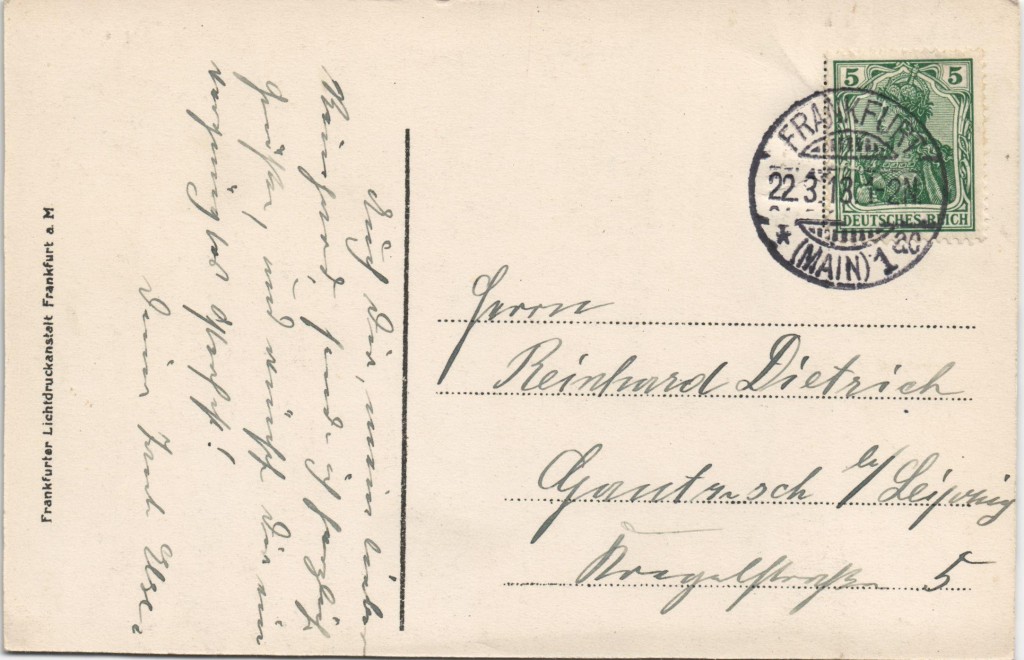 Auch Dir, mein lieber
Reinhard, sende ich herzlich
Grüße, und wünsche Dir ein
vergnügtes Osterfest!
Deine Tante Else.
Frankfurter Lichtdruckanstalt Frankfurt a. M
5 5
DEUTSCHES REICH
FRANKFURT
22.3.13. 1-2N.
* (MAIN) 1
Herrn
Reinhard Dietrich
Gautzsch b/Leipzig
5